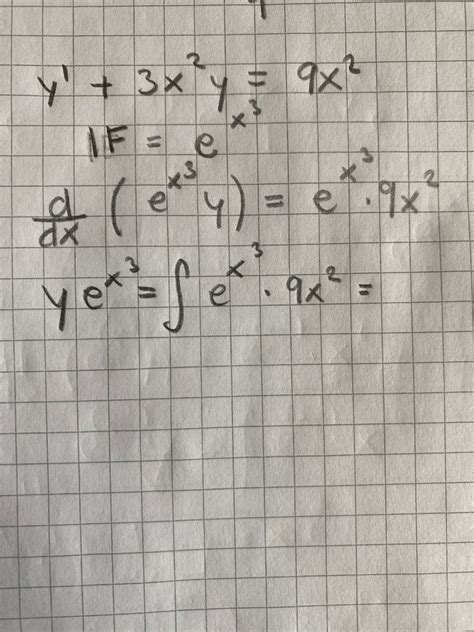 y' + 3x²y = 9x²
IF = e^x³
d/dx (e^x³ y) = e^x³ · 9x²
y e^x³ = ∫ e^x³ · 9x² =